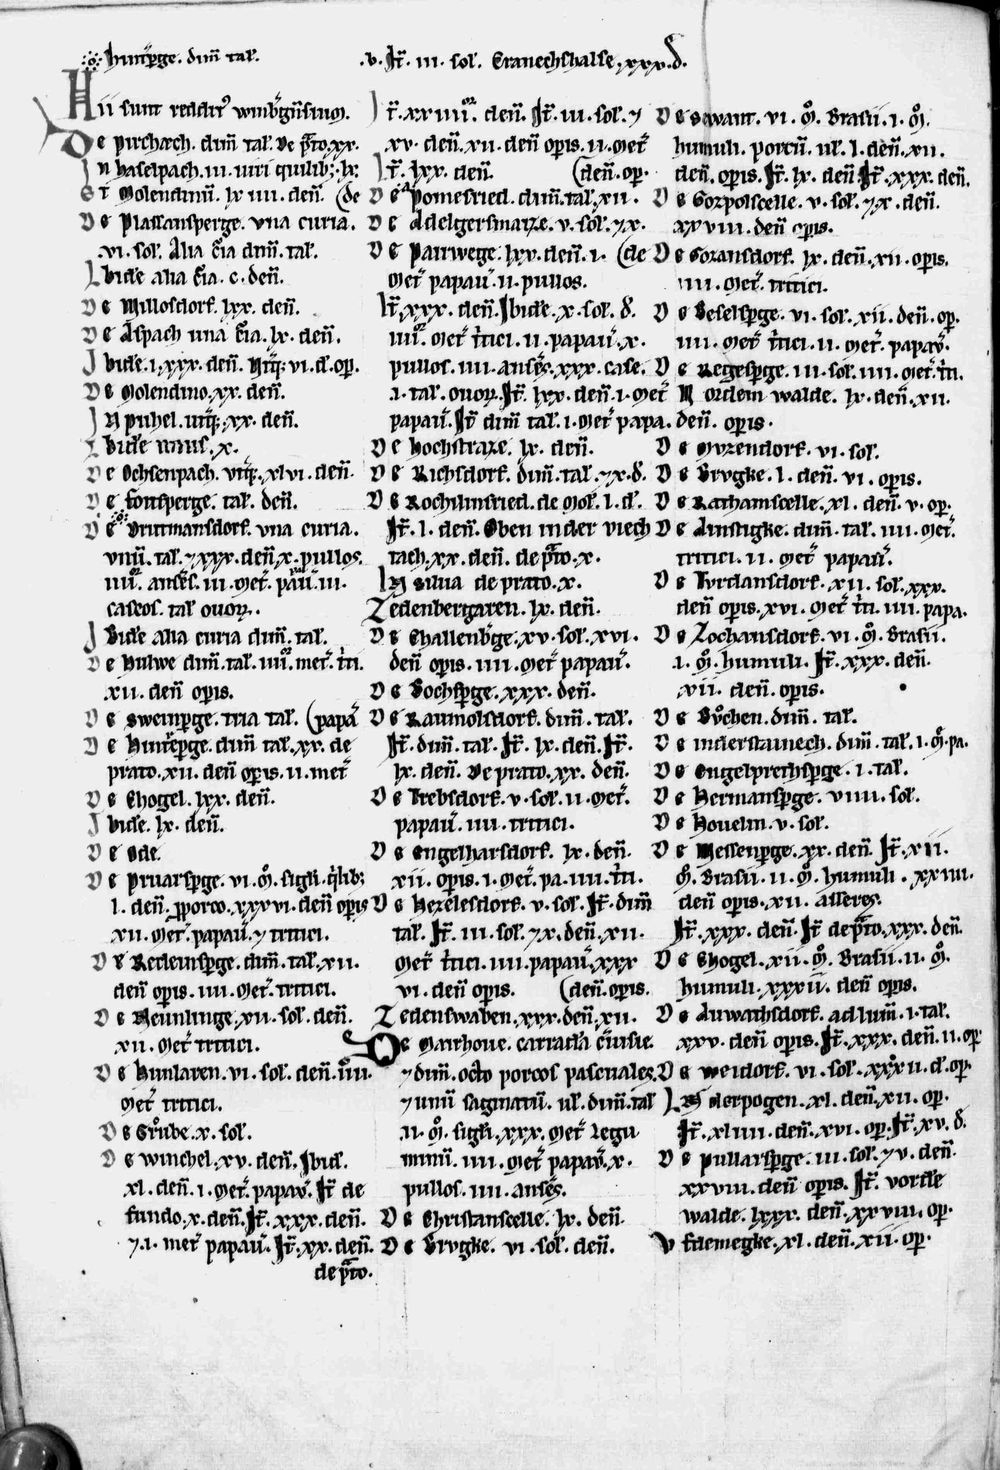 Hunťperge. dim̄ tal̓.
.v. Jt̄. III. sol̓. Cranechshalse. xxx. d̓.
Hii sunt reddit⁹ winb̓gn̄sium.
De pirchæch. dim̄ tal̓. De p̄to. xx.
Jn haselpach. III. viri quilib; . lx.
St Molendinū. lx IIII. den̄. (de
De Plassansperge. vna curia.
.vi. sol. Alia c̄ia dim̄. tal̓.
Jbidē alia c̄ia. c. den̄.
De Millosdorf. lxx. den̄.
De Aspach una c̄ia. lx. den̄.
Jbidē. I. xxx. den̄. vtq̄; vi. d̓. op̄.
De Molendino. xx. den̄.
Jn puhel. utq̄; . xx. den̄.
Jbidē unus. x.
De Ochsenpach. vtq̄; . xlvi. den̄.
De fontsperge. tal̓. den̄.
De Drutmansdorf. vna curia.
vnū. tal̓. ⁊ xxx. den̄. x. pullos.
IIII. ansēs. III. Met̓. papau̓. III.
caseos. tal̓ ouoꝝ.
Jbidē alia curia dim̄. tal̓.
De Hulwe dim̄. tal̓. IIII. met̓. t̓ti.
xII. den̄ op̄is.
De Sweinp̄ge. tria tal̓. (papau̓
De Hunťp̄ge. dim̄ tal̓. xx. de
prato. xII. den̄ op̄is. II. met̓
De Chogel. lxx. den̄.
Jbidē. lx. den̄.
De Ode.
De Pruarsp̄ge. vi. M̊. sigl̓i. q̓lib;
l. den̄. p̄porco. xxxvi. den̄ op̄is
xII. Met̓. papau̓. ⁊ tritici.
De Redeinsp̄ge. dim̄. tal̓. xII.
den̄ op̄is. IIII. Met̓. tritici.
De Meunlinge. xII. sol̓. den̄.
xII. Met̓ tritici.
De Hunlaren. vi. sol̓. den̄. IIII.
Met̓ tritici.
De Grůbe. x. sol̓.
De Winchel. xv. den̄. Jbid̓.
xl. den̄. I. Met̓. papau̓. Jt̄ de
fundo. x. den̄. Jt̄. xxx. den̄.
⁊. I. met̓ papau̓. Jt̄. xx. den̄.
de p̄to.
Jt̄. xxIIII. den̄. Jt̄. III. sol̓. ⁊
xv. den̄. xII. den̄ op̄is. II. Met̓
Jt̄. lxx. den̄. (den̄. op̄.
De Pomesried. dim̄. tal̓. xII.
De Adelgersmaize. v. sol̓. ⁊ x.
De Pairwege. lxx. den̄. I. (de
Met̓ papau̓. II. pullos.
Jt̄. xxx. den̄. Jbidē. x. sol̓. d̓.
IIII. Met̓ t̓tici. II. papau̓. x.
pullos. IIII. ansēs. xxx. case.
.I. tal̓. ouoꝝ. Jt̄. lxx. den̄. I. Met̓
papau̓. Jt̄ dim̄ tal̓. I. Met̓ papa.
De Hochstraze. lx. den̄.
De Richsdorf. dim̄. tal̓. ⁊ x. d̓.
De Rochlinsried. de Mol̓. l. d̓.
Jt̄. l. den̄. Oben in der viech
tach. xx. den̄. de p̄to. x.
In silua de prato. x.
Zedenbergaren. lx. den̄.
De Challenb̓ge. xv. sol̓. xvi.
den̄ op̄is. IIII. Met̓ papau̓.
De Bochsp̄ge. xxx. den̄.
De Raunolsdorf. dim̄. tal̓.
Jt̄. dim̄. tal̓. Jt̄. lx. den̄. Jt̄.
lx. den̄. De prato. xx. den̄.
De Trebsdorf. v. sol̓. II. Met̓.
papau̓. IIII. tritici.
De Engelharsdorf. lx. den̄.
xII. op̄is. I. Met̓. pa. IIII. t̓ti.
De Hezelesdorf. v. sol̓. Jt̄. dim̄
tal̓. Jt̄. III. sol̓. ⁊ x. den̄. xII.
Met̓ t̓tici. IIII. papau̓. xxx
vi. den̄ op̄is. (den̄. op̄is.
Zedenswaben. xxx. den̄. xII.
De Mairhoue. carrada c̓uisie.
⁊ dim̄. octo porcos pascuales.
⁊ unū saginatū. ul̓. dim̄. tal̓
.II. M̊. sigl̓i. xxx. Met̓ Legu
minū. IIII. Met̓ papau̓. x.
pullos. IIII. ansēs.
De Christanscelle. lx. den̄.
De Brvgke. vi. sol̓. den̄.
De Sewant. vi. M̊. Brasii. I. M̊.
humuli. porcū. ul̓. l. den̄. xII.
den̄. op̄is. Jt̄. lx. den̄ Jt̄. xxx. den̄.
De Gozpolscelle. v. sol̓. ⁊ x. den̄.
xxvIII. den̄ op̄is.
De Gozansdorf. lx. den̄. xII. op̄is.
IIII. Met̓. tritici.
De Geselsp̄ge. vi. sol̓. xII. den̄. op̄.
IIII. Met̓ t̓tici. II. Met̓. papau̓.
De Regesp̄ge. III. sol̓. IIII. Met̓. t̓ti.
N ordem walde. lx. den̄. xII.
den̄. op̄is.
De Mvzendorf. vi. sol̓.
De Brvgke. l. den̄. vi. op̄is.
De Rathamscelle. xl. den̄. v. op̄.
De Ainstigke. dim̄. tal̓. IIII. Met̓.
tritici. II. Met̓ papau̓.
De Tvrdansdorf. xII. sol̓. xxx.
den̄ op̄is. xvi. Met̓ t̓ti. IIII. papa.
De Zochansdorf. vi. M̊. Brasii.
.I. M̊. humuli. Jt̄. xxx. den̄.
xii. den̄. op̄is.
De Bůchen. dim̄. tal̓.
De inderstainech. dim̄. tal̓. I. M̊. pa.
De Engelprehtsp̄ge. I. tal̓.
De Hermansp̄ge. vIIII. sol̓.
De Houelin. v. sol̓.
De Messenp̄ge. xx. den̄. Jt̄. xII.
M̊. Brasii. II. M̊. humuli. xxIIII.
den̄ op̄is. xII. asseres.
Jt̄. xxx. den̄. Jt̄ de p̄to. xxx. den̄.
De Chogel. xII. M̊. Brasii. II. M̊.
humuli. xxxii. den̄ op̄is.
De Auwathsdorf. ad lum̄. I. tal̓.
xxv. den̄ op̄is. Jt̄. xxx. den̄. II. op̄
De Weidorf. vi. sol̓. xxxII. d̓. op̄.
In Herpogen. xl. den̄. xII. op̄.
Jt̄. xlIIII. den̄. xvi. op̄. Jt̄. xv. d̓.
De Pullarsp̄ge. III. sol̓. ⁊ v. den̄.
xxvIII. den̄ op̄is. Jt̄. vordē
walde. lxxx. den̄. xxvIII. op̄.
V fdemegke. xl. den̄. xII. op̄.